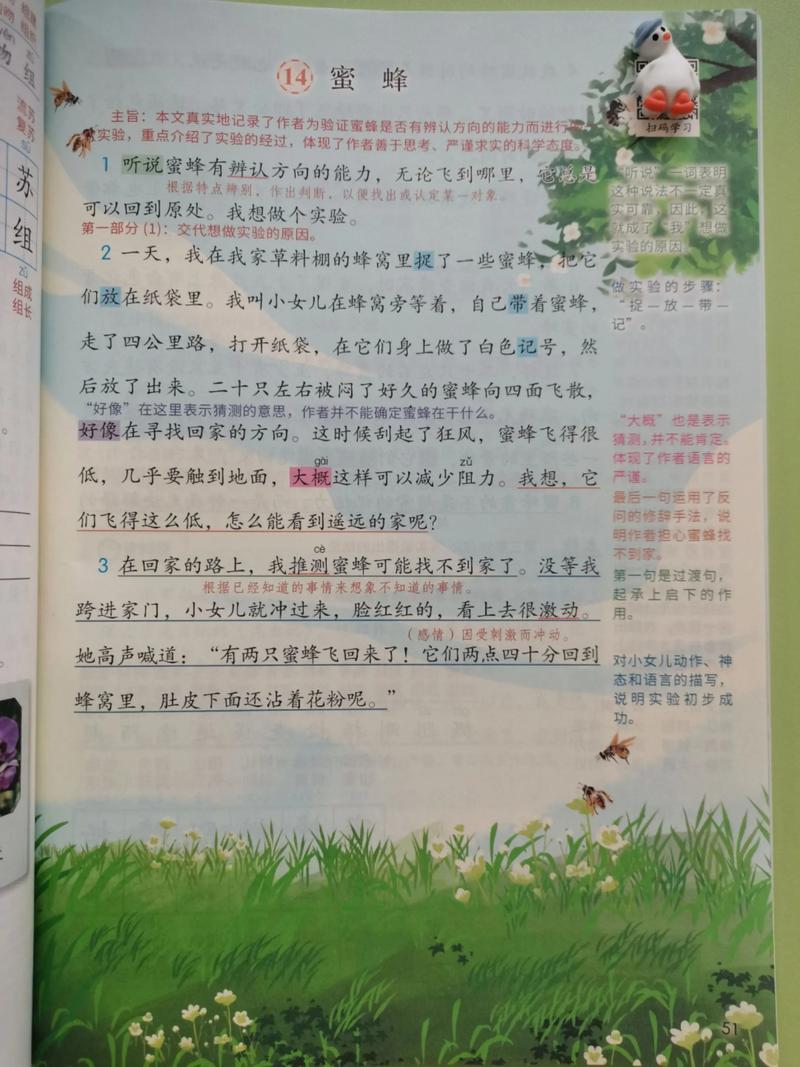 14 蜜 蜂
扫码学习
主旨：本文真实地记录了作者为验证蜜蜂是否有辨认方向的能力而进行
实验，重点介绍了实验的经过，体现了作者善于思考、严谨求实的科学态度。
1 听说蜜蜂有辨认方向的能力，无论飞到哪里，它总是
根据特点辨别，作出判断，以便找出或认定某一对象。
可以回到原处。我想做个实验。
第一部分（1）：交代想做实验的原因。
2 一天，我在我家草料棚的蜂窝里捉了一些蜜蜂，把它
们放在纸袋里。我叫小女儿在蜂窝旁等着，自己带着蜜蜂，
走了四公里路，打开纸袋，在它们身上做了白色记号，然
后放了出来。二十只左右被闷了好久的蜜蜂向四面飞散，
“好像”在这里表示猜测的意思，作者并不能确定蜜蜂在干什么。
好像在寻找回家的方向。这时候刮起了狂风，蜜蜂飞得很
gài zǔ
低，几乎要触到地面，大概这样可以减少阻力。我想，它
们飞得这么低，怎么能看到遥远的家呢？
cè
3 在回家的路上，我推测蜜蜂可能找不到家了。没等我
根据已经知道的事情来想象不知道的事情。
跨进家门，小女儿就冲过来，脸红红的，看上去很激动。
（感情）因受刺激而冲动。
她高声喊道：“有两只蜜蜂飞回来了！它们两点四十分回到
蜂窝里，肚皮下面还沾着花粉呢。”
“听说”一词表明
这种说法不一定真
实可靠，因此，这
就成了“我”想做
实验的原因。
做实验的步骤：
“捉—放—带—
记”。
“大概”也是表示
猜测，并不能肯定。
体现了作者语言的
严谨。
最后一句运用了反
问的修辞手法，说
明作者担心蜜蜂找
不到家。
第一句是过渡句，
起承上启下的作
用。
对小女儿动作、神
态和语言的描写，
说明实验初步成
功。
51
组
流苏
复苏
苏
组
zǔ
组成
组长